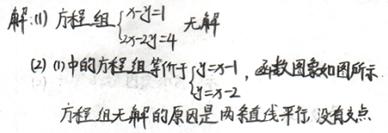 解:(1) 方程组{x-y=1 无解
2x-2y=4
(2) (1)中的方程组等价于{y=x-1, 函数图象如图所示.
y=x-2
方程组无解的原因是两条直线平行,没有交点